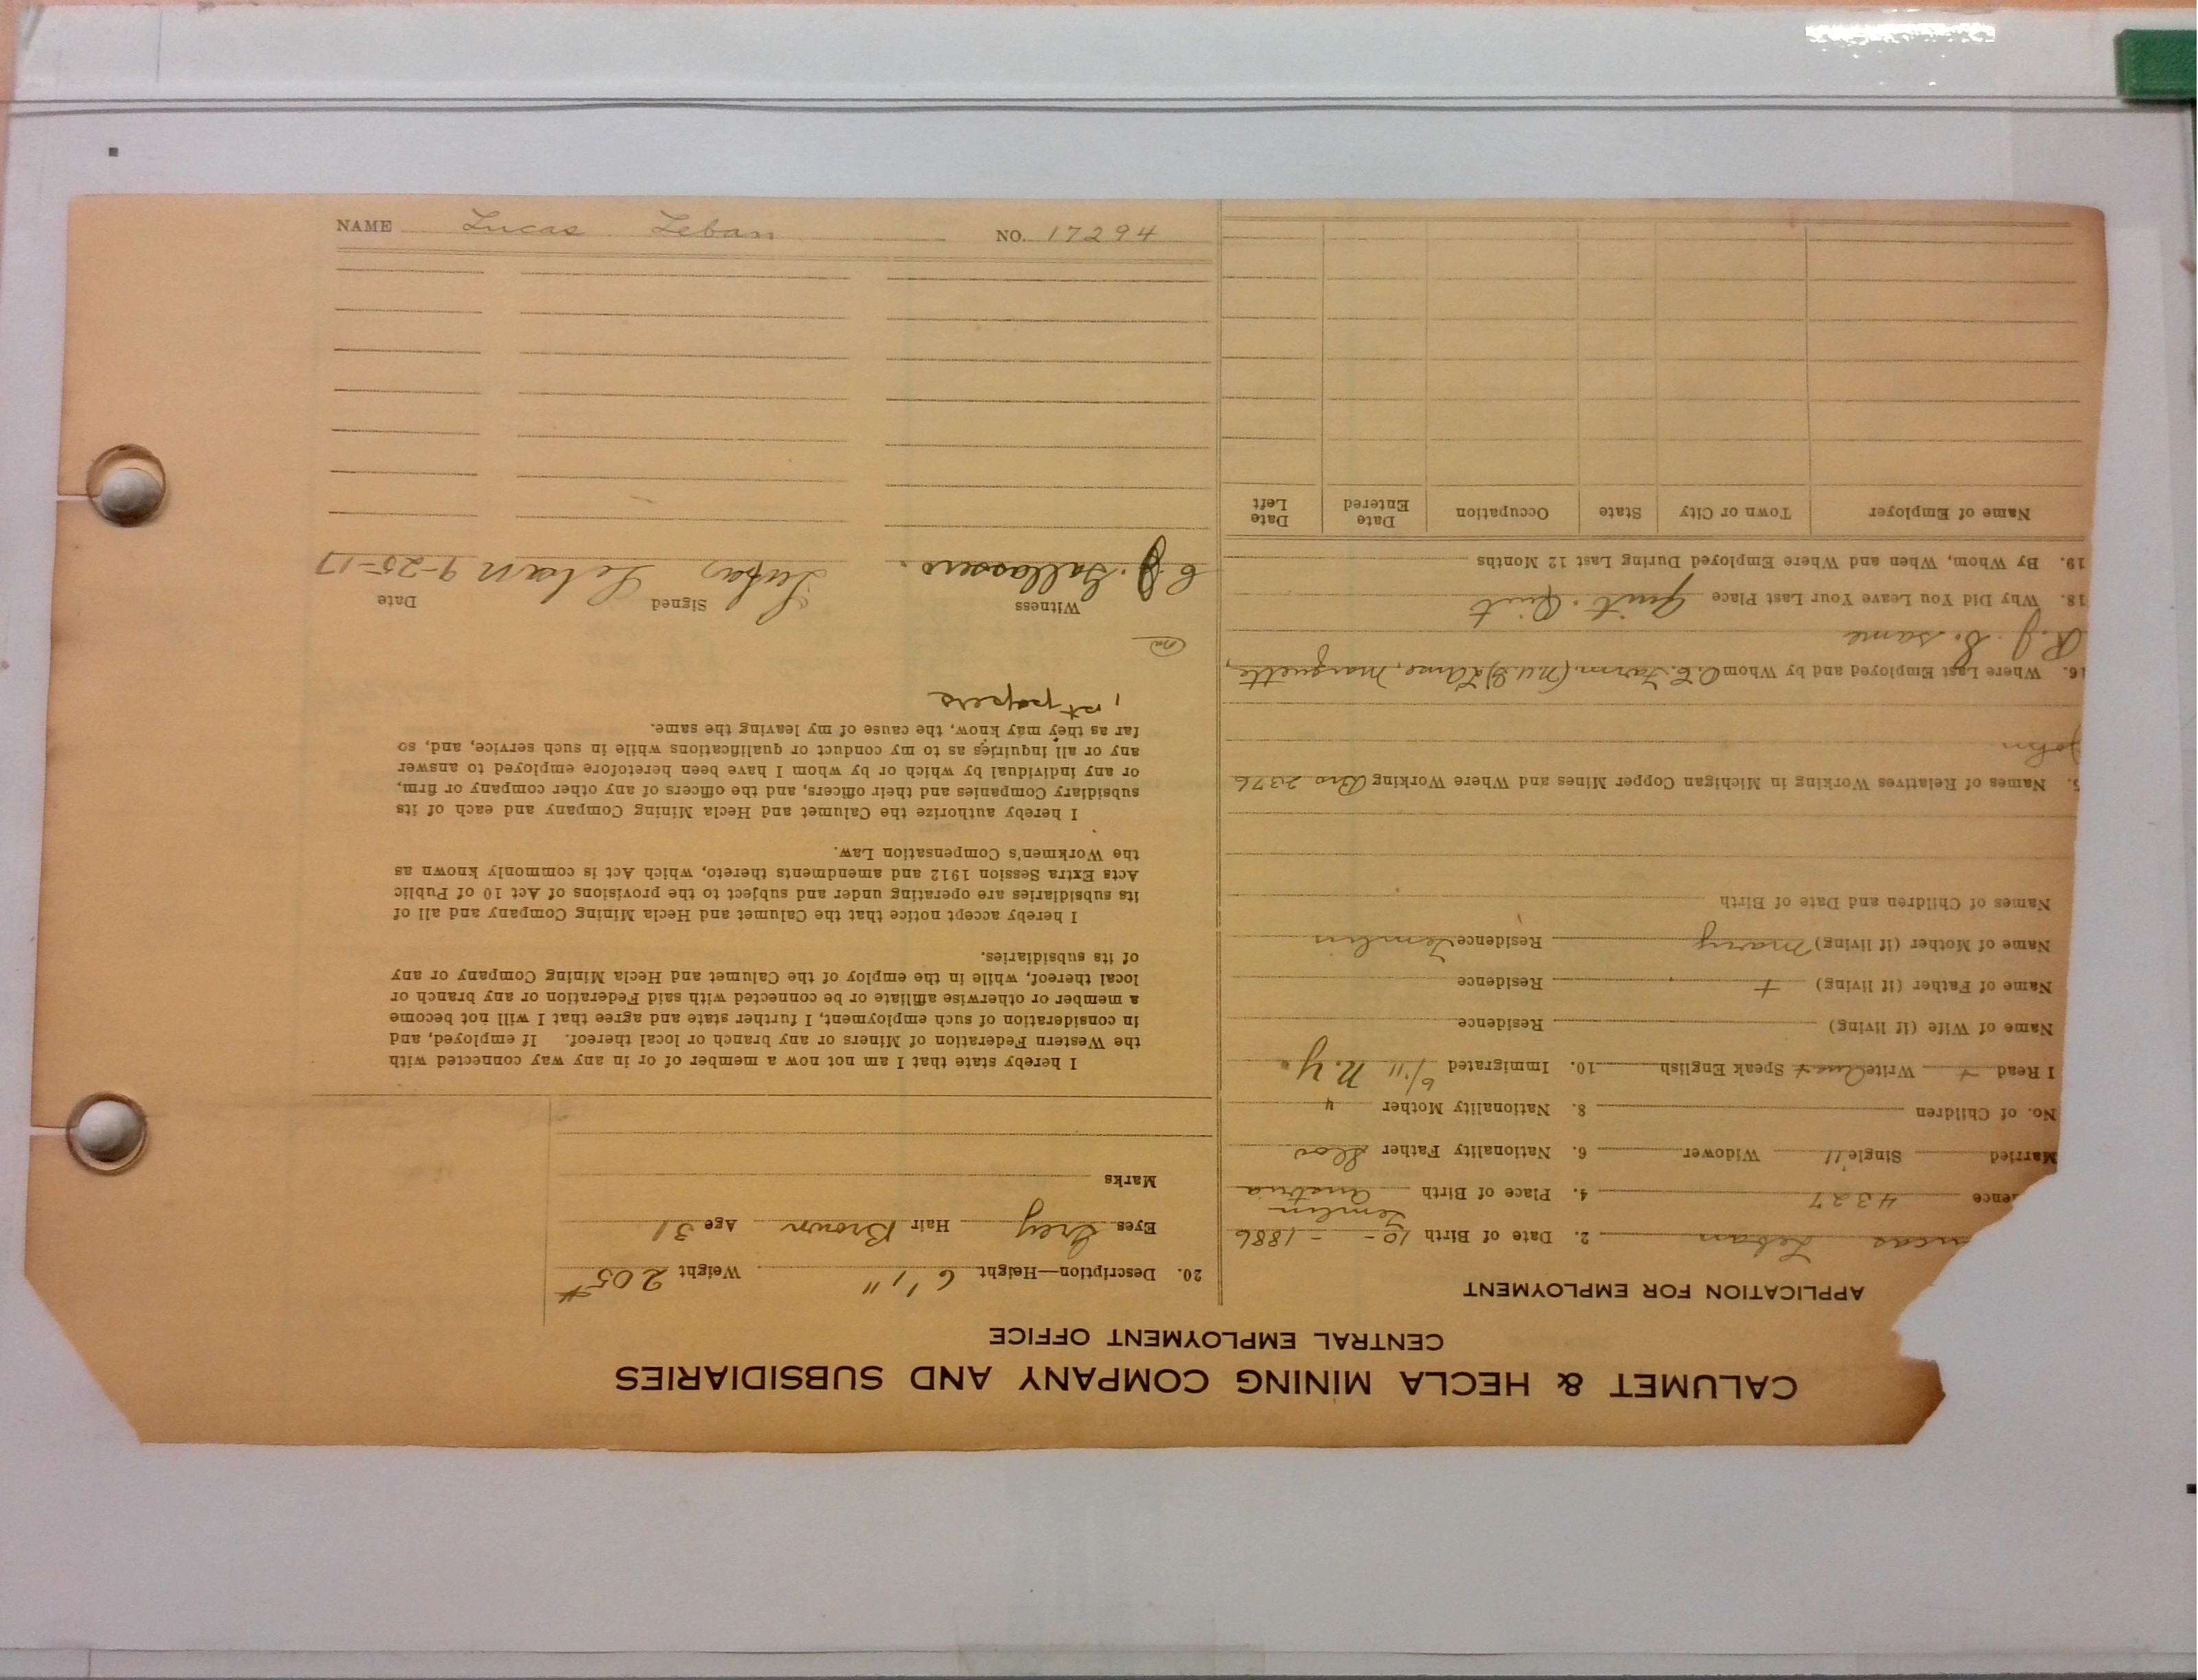 NAME Lucas Leban NO. 17294
CALUMET & HECLA MINING COMPANY AND SUBSIDIARIES
CENTRAL EMPLOYMENT OFFICE
APPLICATION FOR EMPLOYMENT
ucas Leban 2. Date of Birth 10 - - 1886
Zemlin
ence 4327 4. Place of Birth Austria
Married Single 11 Widower 6. Nationality Father Slov
No. of Children 8. Nationality Mother 4
I Read + Write Aust + Speak English 10. Immigrated 6/11 N.Y.
Name of Wife (if living) Residence
Name of Father (if living) + Residence
Name of Mother (if living) Mary Residence Zemlin
Names of Children and Date of Birth
5. Names of Relatives Working in Michigan Copper Mines and Where Working Bro 2376
John
16. Where Last Employed and by Whom Farm, Marquette,
same
18. Why Did You Leave Your Last Place Quit. Quit
19. By Whom, When and Where Employed During Last 12 Months
Name of Employer Town or City State Occupation Date Entered Date Left
20. Description—Height 6'1" Weight 205#
Eyes Grey Hair Brown Age 31
Marks
I hereby state that I am not now a member of or in any way connected with
the Western Federation of Miners or any branch or local thereof. If employed, and
in consideration of such employment, I further state and agree that I will not become
a member or otherwise affiliate or be connected with said Federation or any branch or
local thereof, while in the employ of the Calumet and Hecla Mining Company or any
of its subsidiaries.
I hereby accept notice that the Calumet and Hecla Mining Company and all of
its subsidiaries are operating under and subject to the provisions of Act 10 of Public
Acts Extra Session 1912 and amendments thereto, which Act is commonly known as
the Workmen's Compensation Law.
I hereby authorize the Calumet and Hecla Mining Company and each of its
subsidiary Companies and their officers, and the officers of any other company or firm,
or any individual by which or by whom I have been heretofore employed to answer
any or all inquiries as to my conduct or qualifications while in such service, and, so
far as they may know, the cause of my leaving the same.
1st papers
Witness Signed Date
Leban 9-25-17